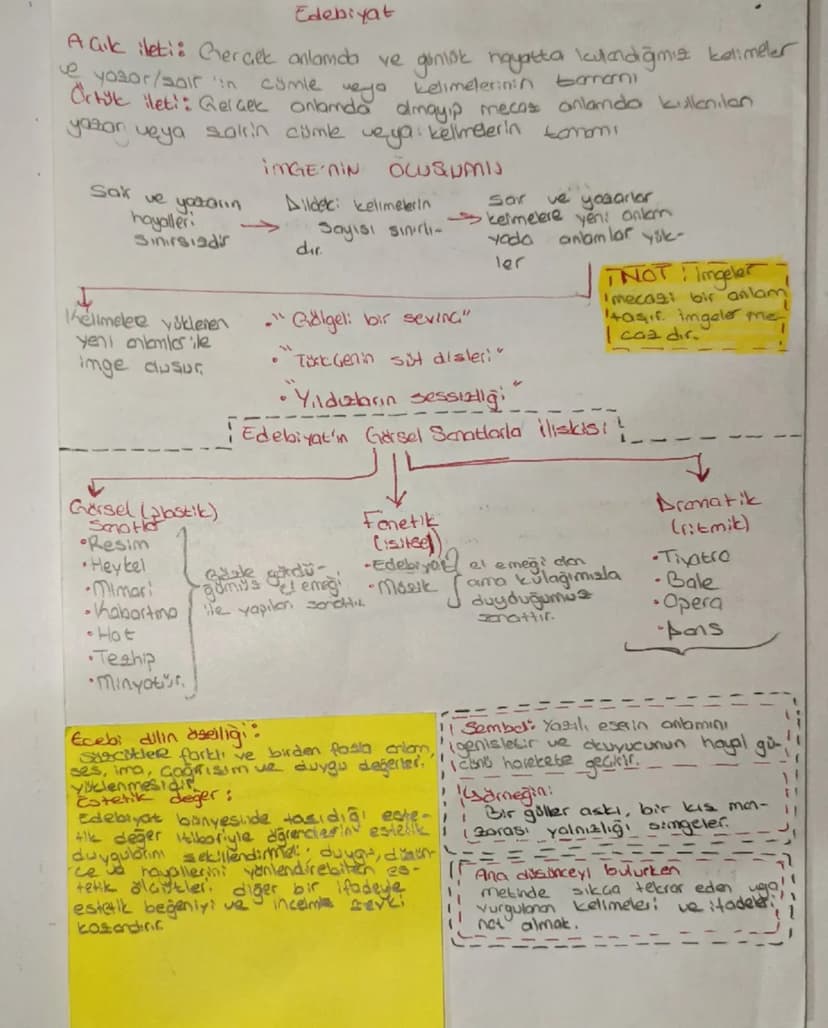 Edebiyat
Açık ileti: Gerçek anlamda ve günlük hayatta kullandığımız kelimeler
ve yazar/şair'in cümle veya kelimelerinin tamamı
Örtük ileti: Gerçek anlamda olmayıp mecaz anlamda kullanılan
yazar veya şairin cümle veya kelimelerin tamamı
İMGE'NİN OLUŞUMU
Şair ve yazarın
hayalleri
sınırsızdır
Dildeki kelimelerin
sayısı sınırlı-
dır.
Şair ve yazarlar
kelimelere yeni anlam
yada anlamlar yük-
ler
NOT: İmgeler
mecazi bir anlam
taşır. imgeler me-
cazdır.
Kelimelere yüklenen
yeni anlamlar ile
imge oluşur.
• "Gölgeli bir sevinç"
• "Türkçenin süt dişleri"
• "Yıldızların sessizliği"
Edebiyat'ın Görsel Sanatlarla İlişkisi
Görsel (plastik)
Sanatlar
• Resim
• Heykel
• Mimari
• Kabartma
• Hat
• Tezhip
• Minyatür.
Gözle gördü-
ğümüz el emeği
ile yapılan sanattır.
Fonetik
(işitsel)
• Edebiyat
• Müzik
el emeği olan
ama kulağımızla
duyduğumuz
sanattır.
Dramatik
(ritmik)
• Tiyatro
• Bale
• Opera
• Dans
Edebi dilin özelliği:
Sözcüklere farklı ve birden fazla anlam,
ses, ima, çağrışım ve duygu değerler.
yüklenmesidir.
Estetik değer:
Edebiyat bünyesinde taşıdığı este-
tik değer itibariyle öğrencilerin estetik
duygularını şekillendirmeli, duygu, düşün-
ce ve hayallerini yönlendirebilen es-
tetik ölçütler. diğer bir ifadeyle
estetik beğeniyi ve incelmiş zevki
kazandırır.
Sembol: Yazılı eserin anlamını
genişletir ve okuyucunun hayal gü-
cünü harekete geçirir.
Örneğin:
Bir güller aşkı, bir kış man-
zarası yalnızlığı simgeler.
Ana düşünceyi bulurken
metinde sıkça tekrar eden veya
vurgulanan kelimeleri ve ifadeleri
not almak.